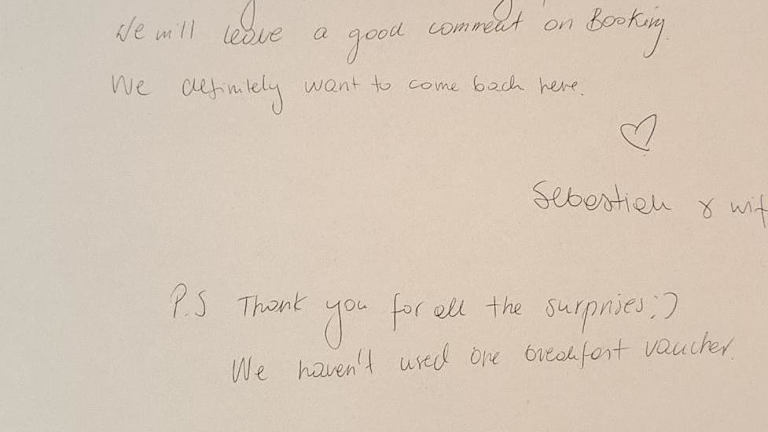 We will leave a good comment on Booking.
We definitely want to come back here.
♡
Sebastian & wif
P.S Thank you for all the surprises :)
We haven't used one breakfast voucher.